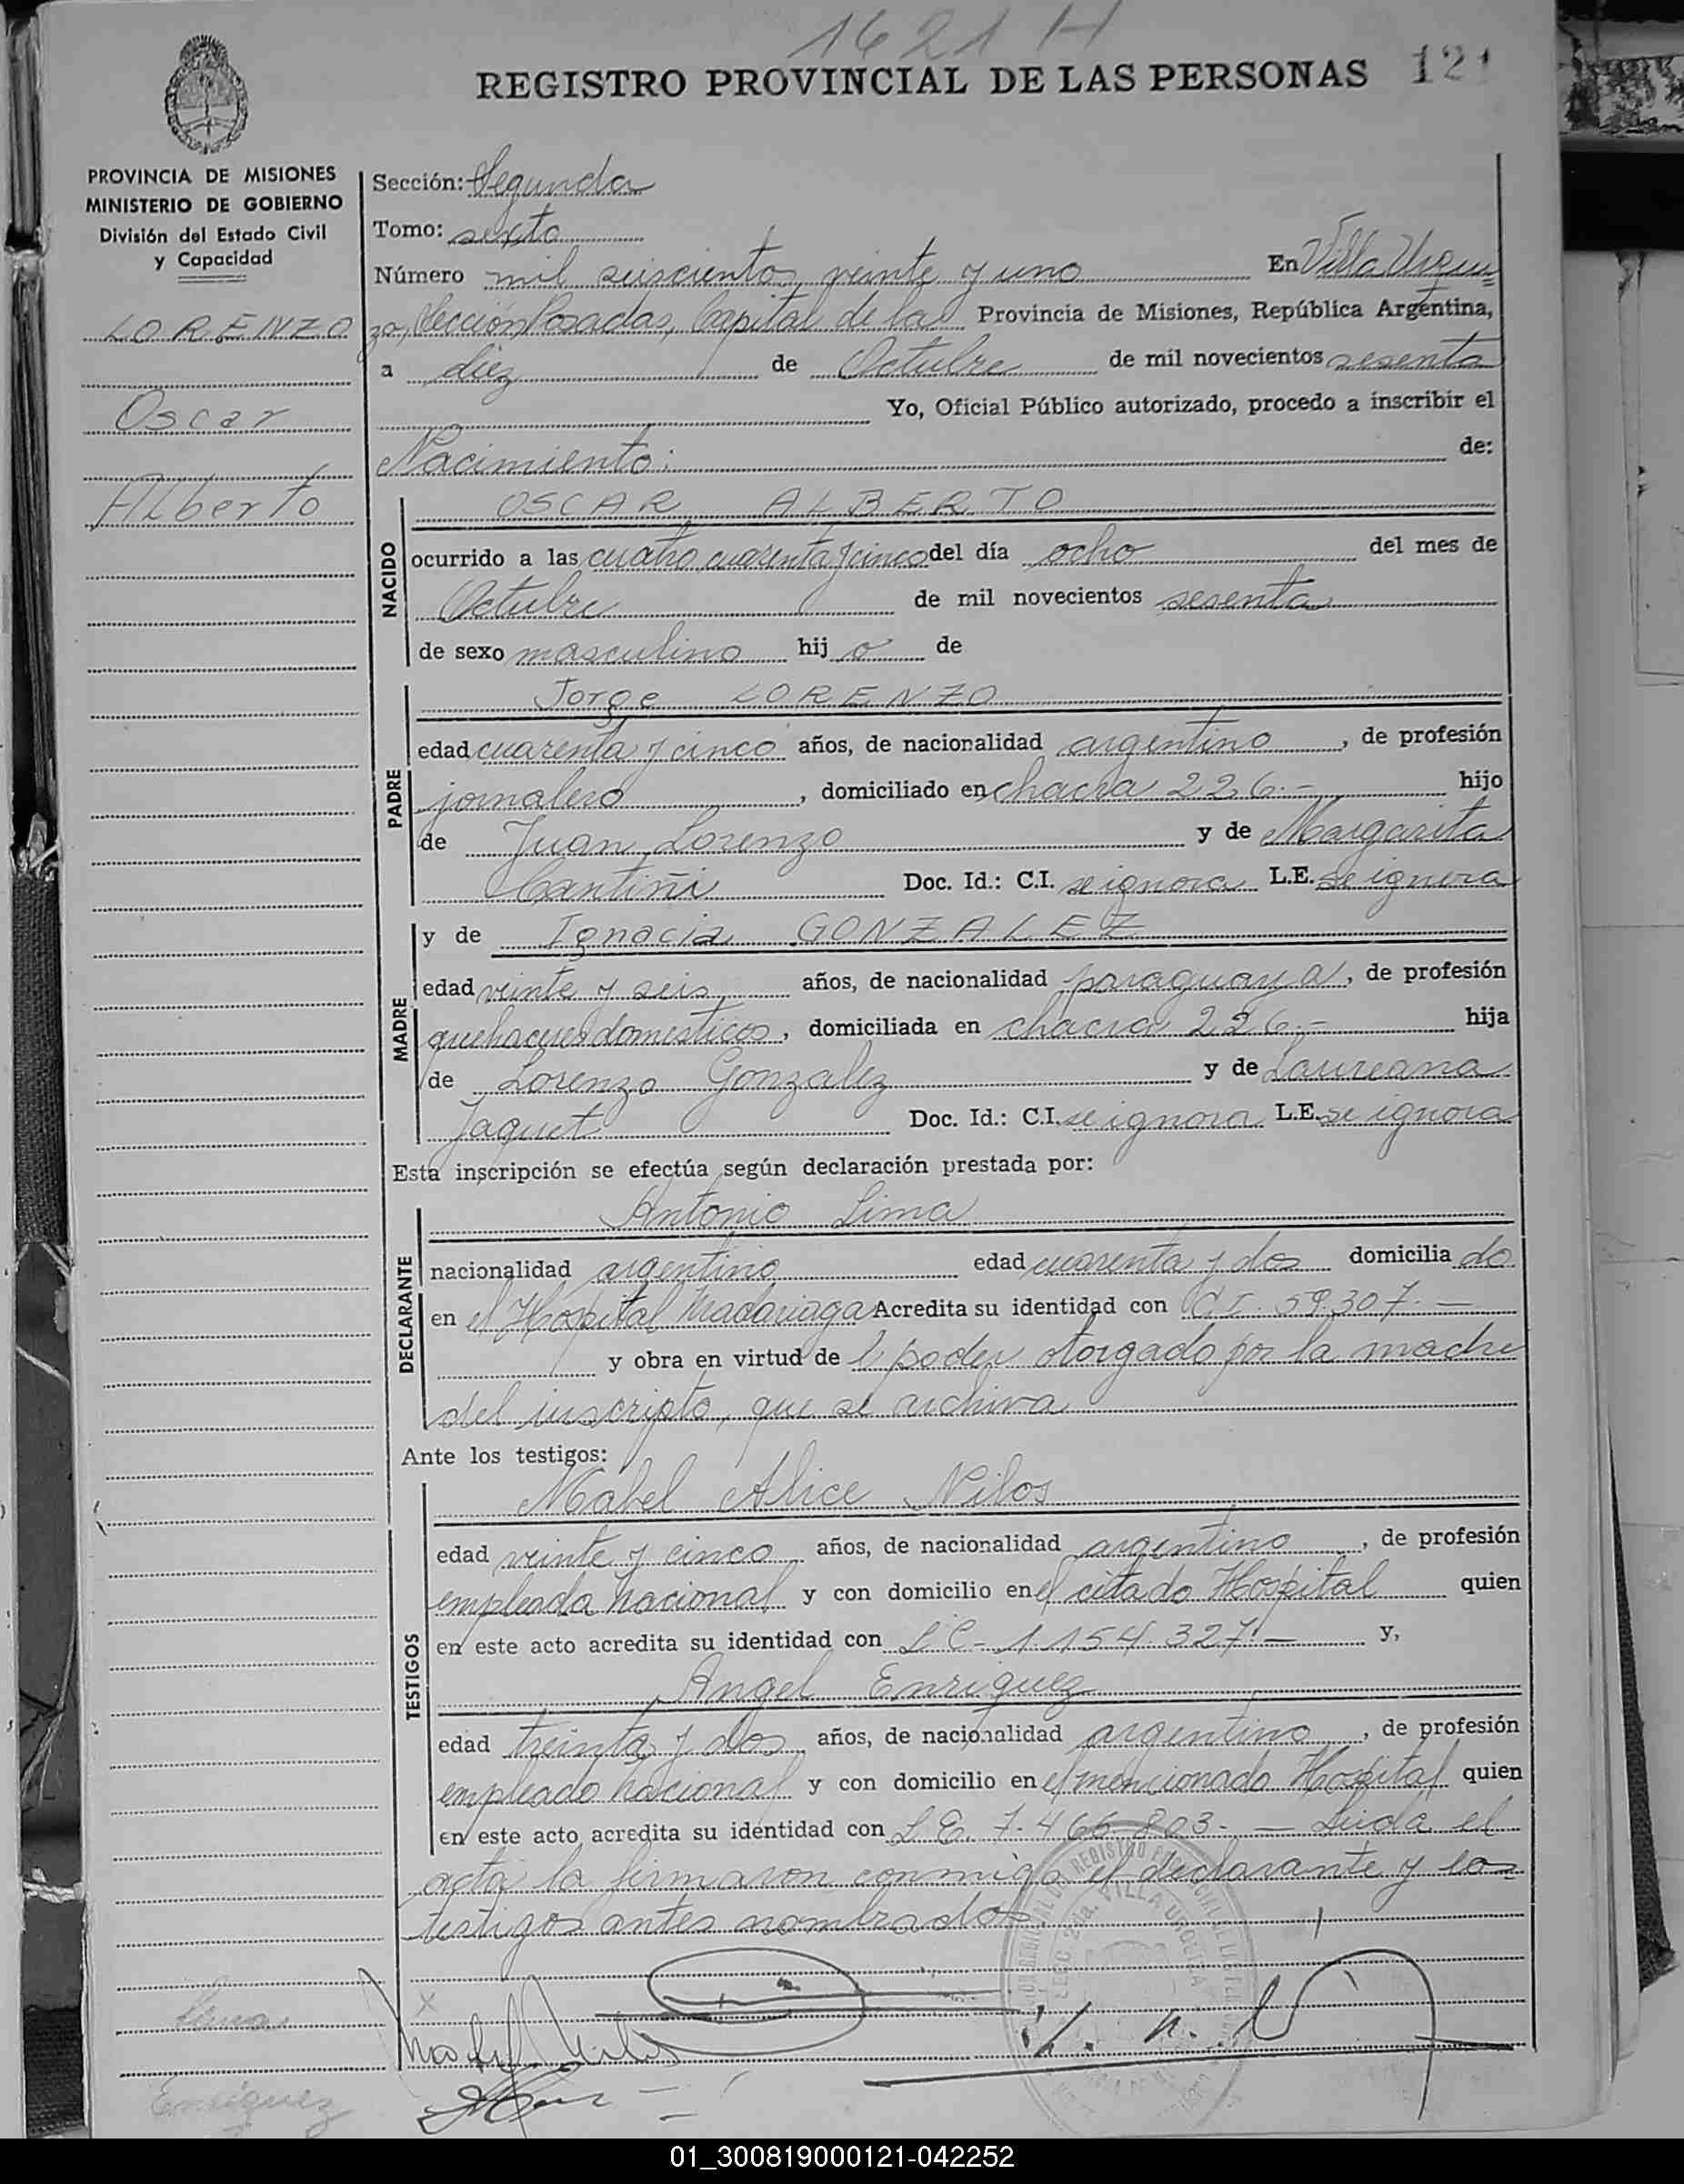 1621 H
REGISTRO PROVINCIAL DE LAS PERSONAS 121
PROVINCIA DE MISIONES
MINISTERIO DE GOBIERNO
División del Estado Civil
y Capacidad
LORENZO
Oscar
Alberto
Sección: Segunda
Tomo: sexto
Número mil seiscientos veinte y uno En Villa Urqui
za, Sección Posadas, Capital de la Provincia de Misiones, República Argentina,
a diez de Octubre de mil novecientos sesenta
Yo, Oficial Público autorizado, procedo a inscribir el
Nacimiento: de:
NACIDO
OSCAR ALBERTO
ocurrido a las cuatro cuarenta y cinco del día ocho del mes de
Octubre de mil novecientos sesenta
de sexo masculino hijo de
PADRE
Jorge LORENZO
edad cuarenta y cinco años, de nacionalidad argentino, de profesión
jornalero, domiciliado en chacra 226.- hijo
de Juan Lorenzo y de Margarita
Cantiñi Doc. Id.: C.I. se ignora L.E. se ignora
MADRE
y de Ignacia GONZALEZ
edad veinte y seis años, de nacionalidad paraguaya, de profesión
quehaceres domesticos, domiciliada en chacra 226.- hija
de Lorenzo Gonzalez y de Laureana
Jaquet Doc. Id.: C.I. se ignora L.E. se ignora
Esta inscripción se efectúa según declaración prestada por:
DECLARANTE
Antonio Lima
nacionalidad argentino edad cuarenta y dos domiciliado
en el Hospital Madariaga Acredita su identidad con C.I. 59.307.-
y obra en virtud de l poder otorgado por la madre
del inscripto, que se archiva
Ante los testigos:
TESTIGOS
Mabel Alice Nilos
edad veinte y cinco años, de nacionalidad argentino, de profesión
empleada nacional y con domicilio en el citado Hospital quien
en este acto acredita su identidad con L C- 1.154.327.- y,
Angel Enriquez
edad treinta y dos años, de nacionalidad argentino, de profesión
empleado nacional y con domicilio en el mencionado Hospital quien
en este acto acredita su identidad con L E. 7.466.803.- Leida el
acta la firmaron conmigo el declarante y los
testigos antes nombrados
Lima
Enriquez
01_300819000121-042252